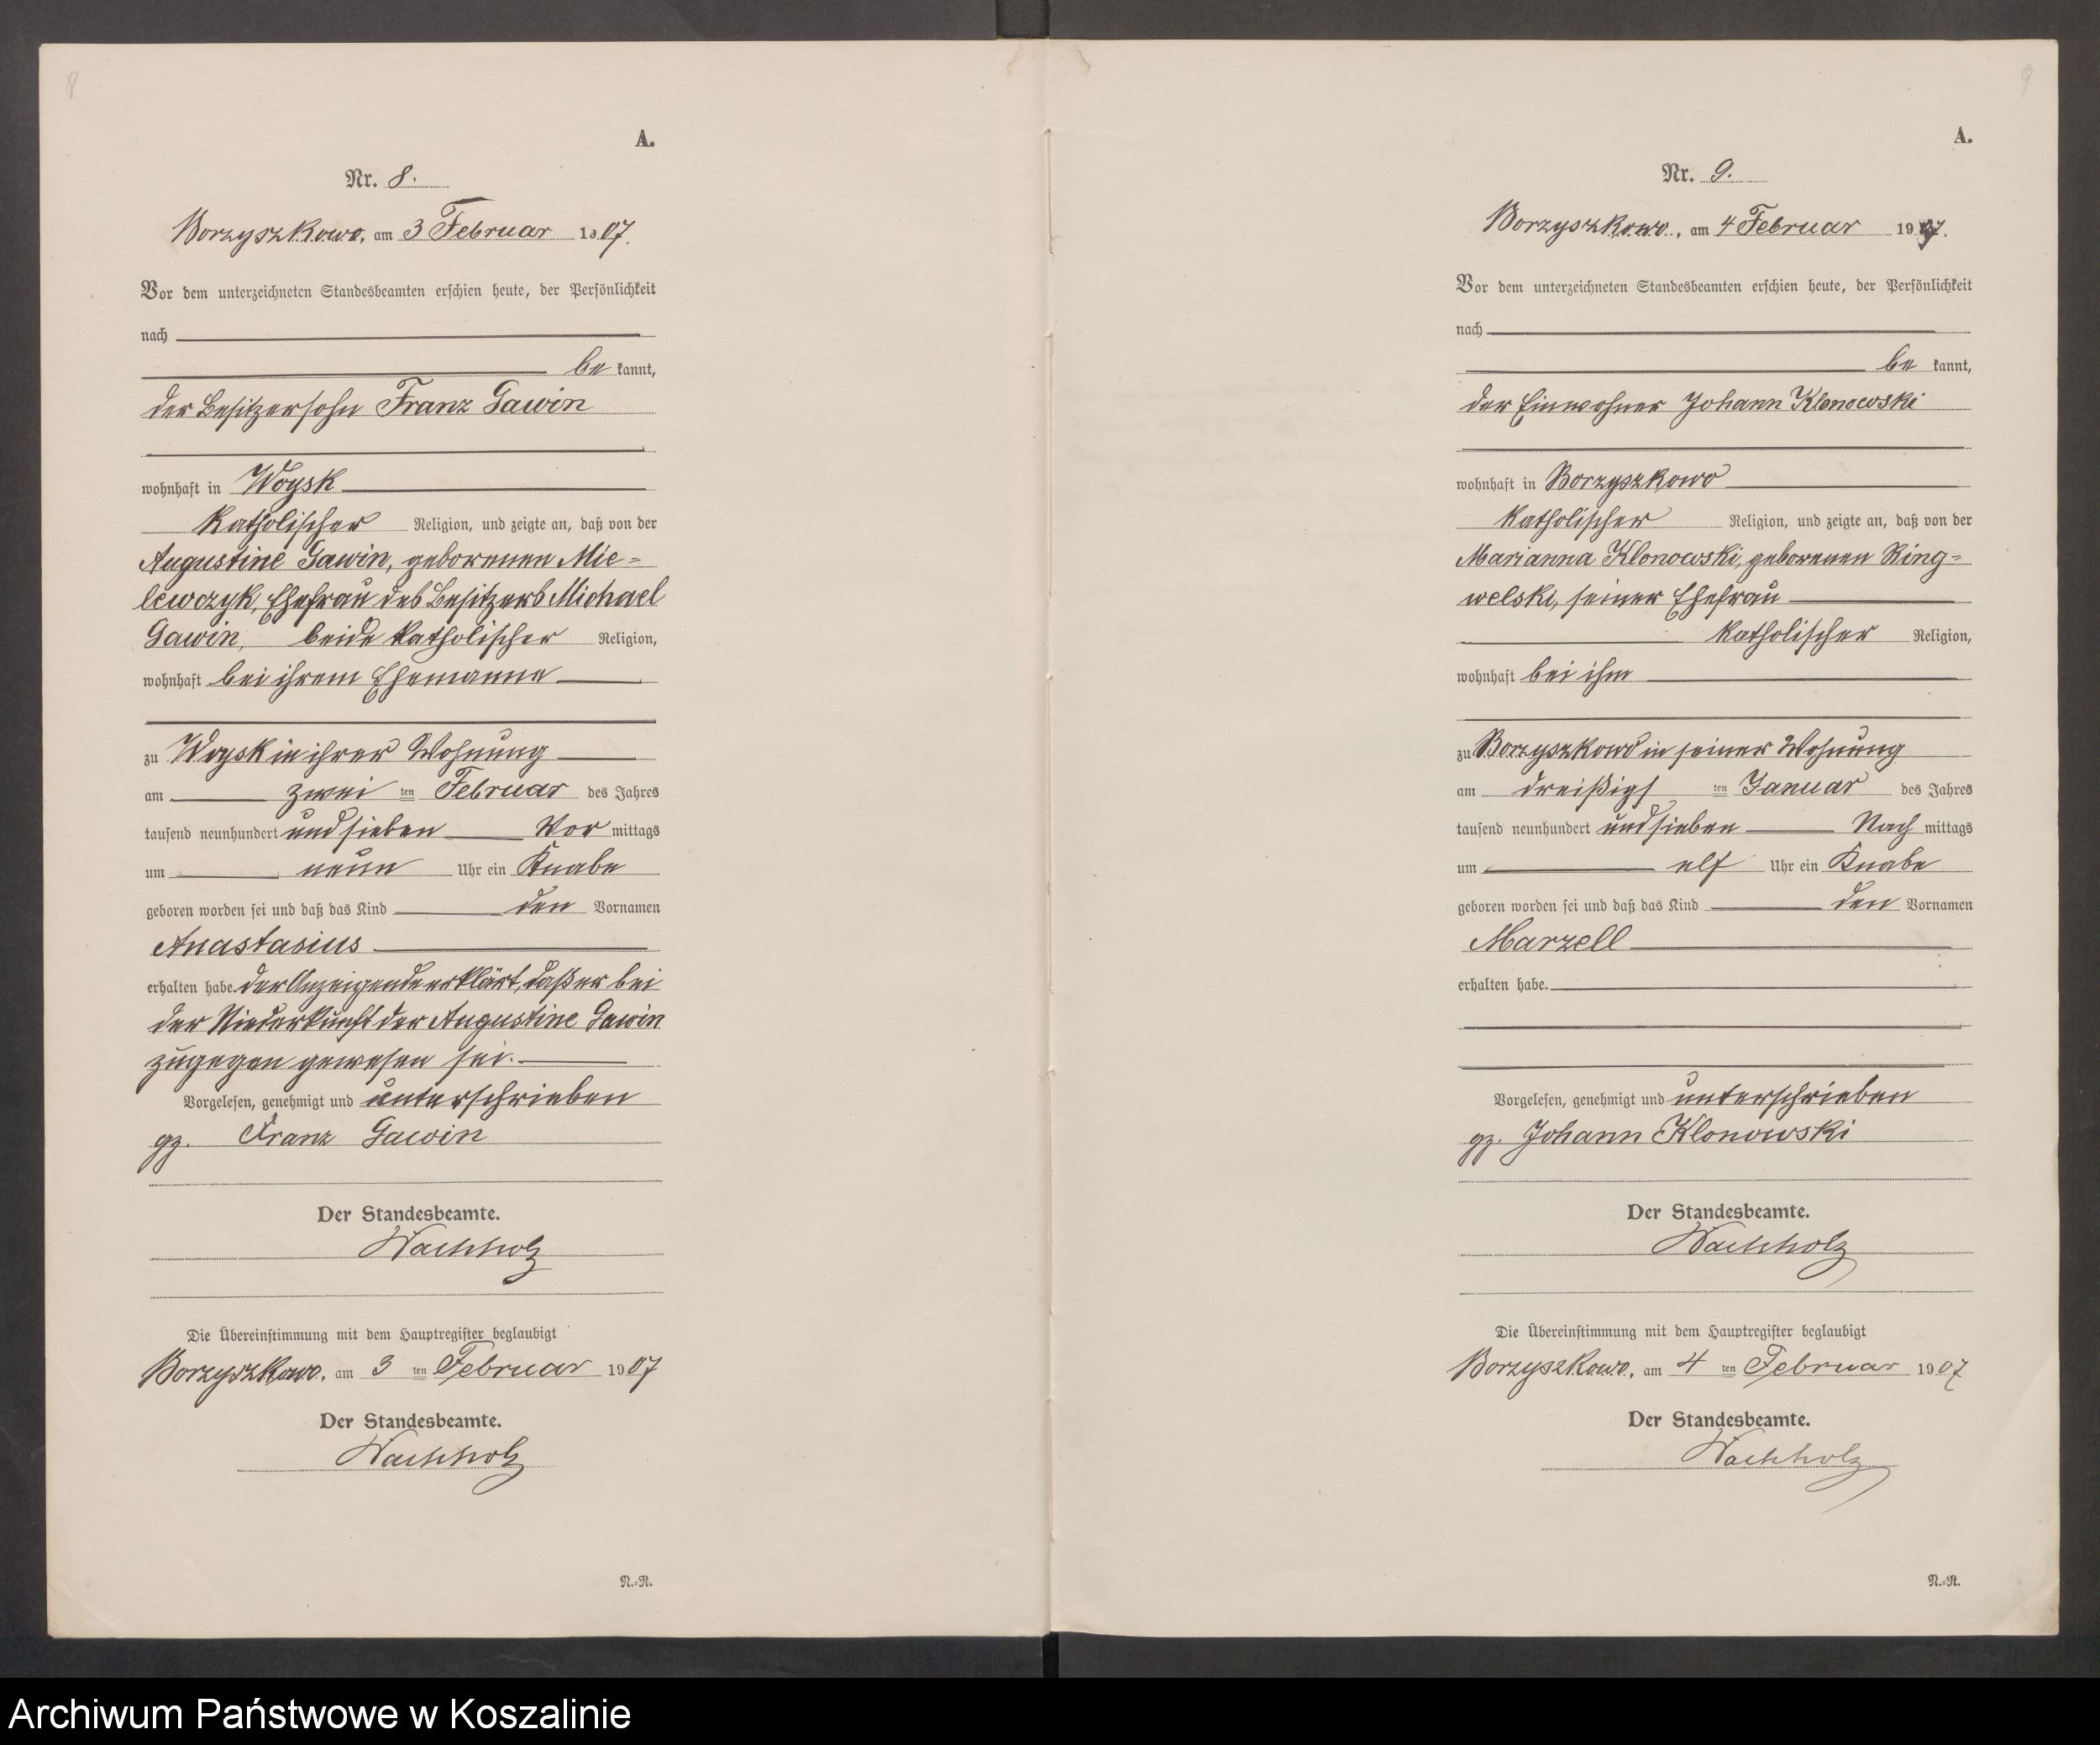 8
A.
Nr. 8.
Borzyszkowo, am 3 Februar 1907.
Vor dem unterzeichneten Standesbeamten erschien heute, der Persönlichkeit
nach
be kannt,
der Besitzersohn Franz Gawin
wohnhaft in Woysk
katholischer Religion, und zeigte an, daß von der
Augustine Gawin, geborenen Mie-
lewczyk, Ehefrau des Besitzers Michael
Gawin, beide katholischer Religion,
wohnhaft bei ihrem Ehemanne
zu Woysk in ihrer Wohnung
am zwei ten Februar des Jahres
tausend neunhundert und sieben Vor mittags
um neun Uhr ein Knabe
geboren worden sei und daß das Kind den Vornamen
Anastasius
erhalten habe. der Anzeigende erklärt, daß er bei
der Niederkunft der Augustine Gawin
zugegen gewesen sei.
Vorgelesen, genehmigt und unterschrieben
gz. Franz Gawin
Der Standesbeamte.
Wachholz
Die Übereinstimmung mit dem Hauptregister beglaubigt
Borzyszkowo, am 3 ten Februar 1907
Der Standesbeamte.
Wachholz
N.=R.
9
A.
Nr. 9.
Borzyszkowo, am 4 Februar 1907.
Vor dem unterzeichneten Standesbeamten erschien heute, der Persönlichkeit
nach
be kannt,
der Einwohner Johann Klonowski
wohnhaft in Borzyszkowo
katholischer Religion, und zeigte an, daß von der
Marianna Klonowski, geborenen Ring-
welski, seiner Ehefrau
katholischer Religion,
wohnhaft bei ihm
zu Borzyszkowo in seiner Wohnung
am dreißigs ten Januar des Jahres
tausend neunhundert und sieben Nach mittags
um elf Uhr ein Knabe
geboren worden sei und daß das Kind den Vornamen
Marzell
erhalten habe.
Vorgelesen, genehmigt und unterschrieben
gz. Johann Klonowski
Der Standesbeamte.
Wachholz
Die Übereinstimmung mit dem Hauptregister beglaubigt
Borzyszkowo, am 4 ten Februar 1907
Der Standesbeamte.
Wachholz
N.=R.
Archiwum Państwowe w Koszalinie